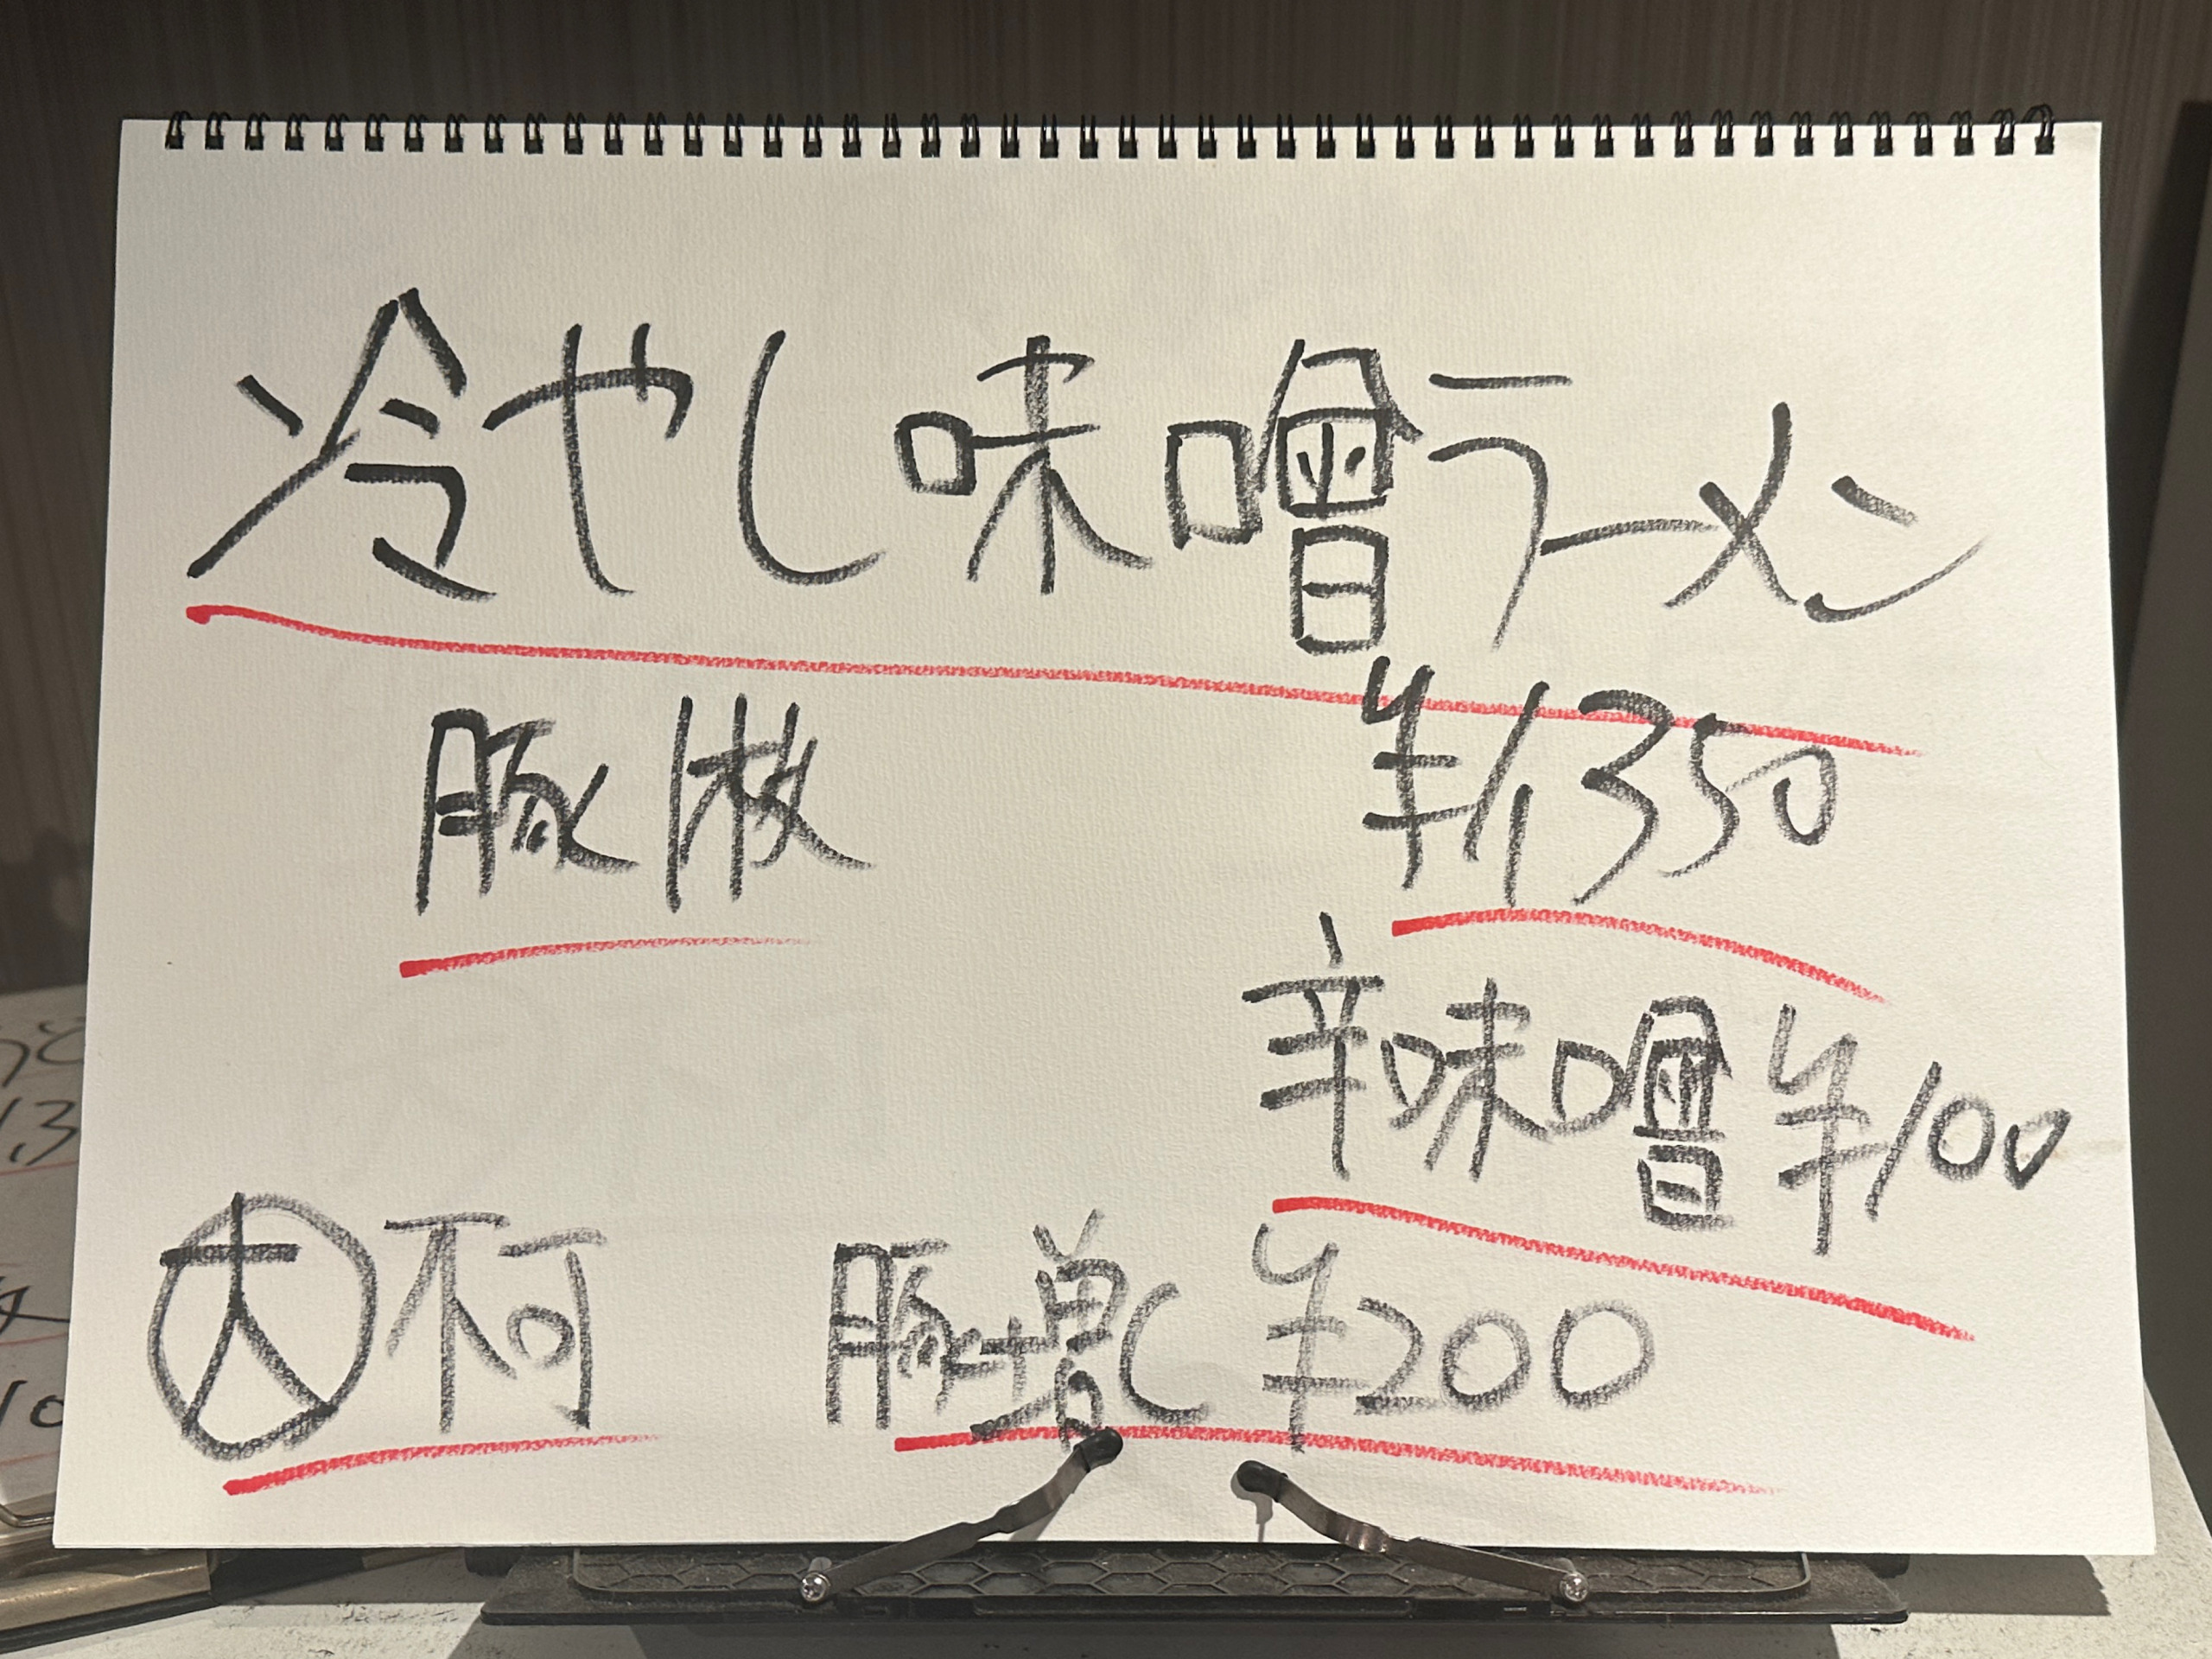 冷やし味噌ラーメン
豚1枚 ¥1,350
辛味噌 ¥100
大 不可 豚増し ¥200